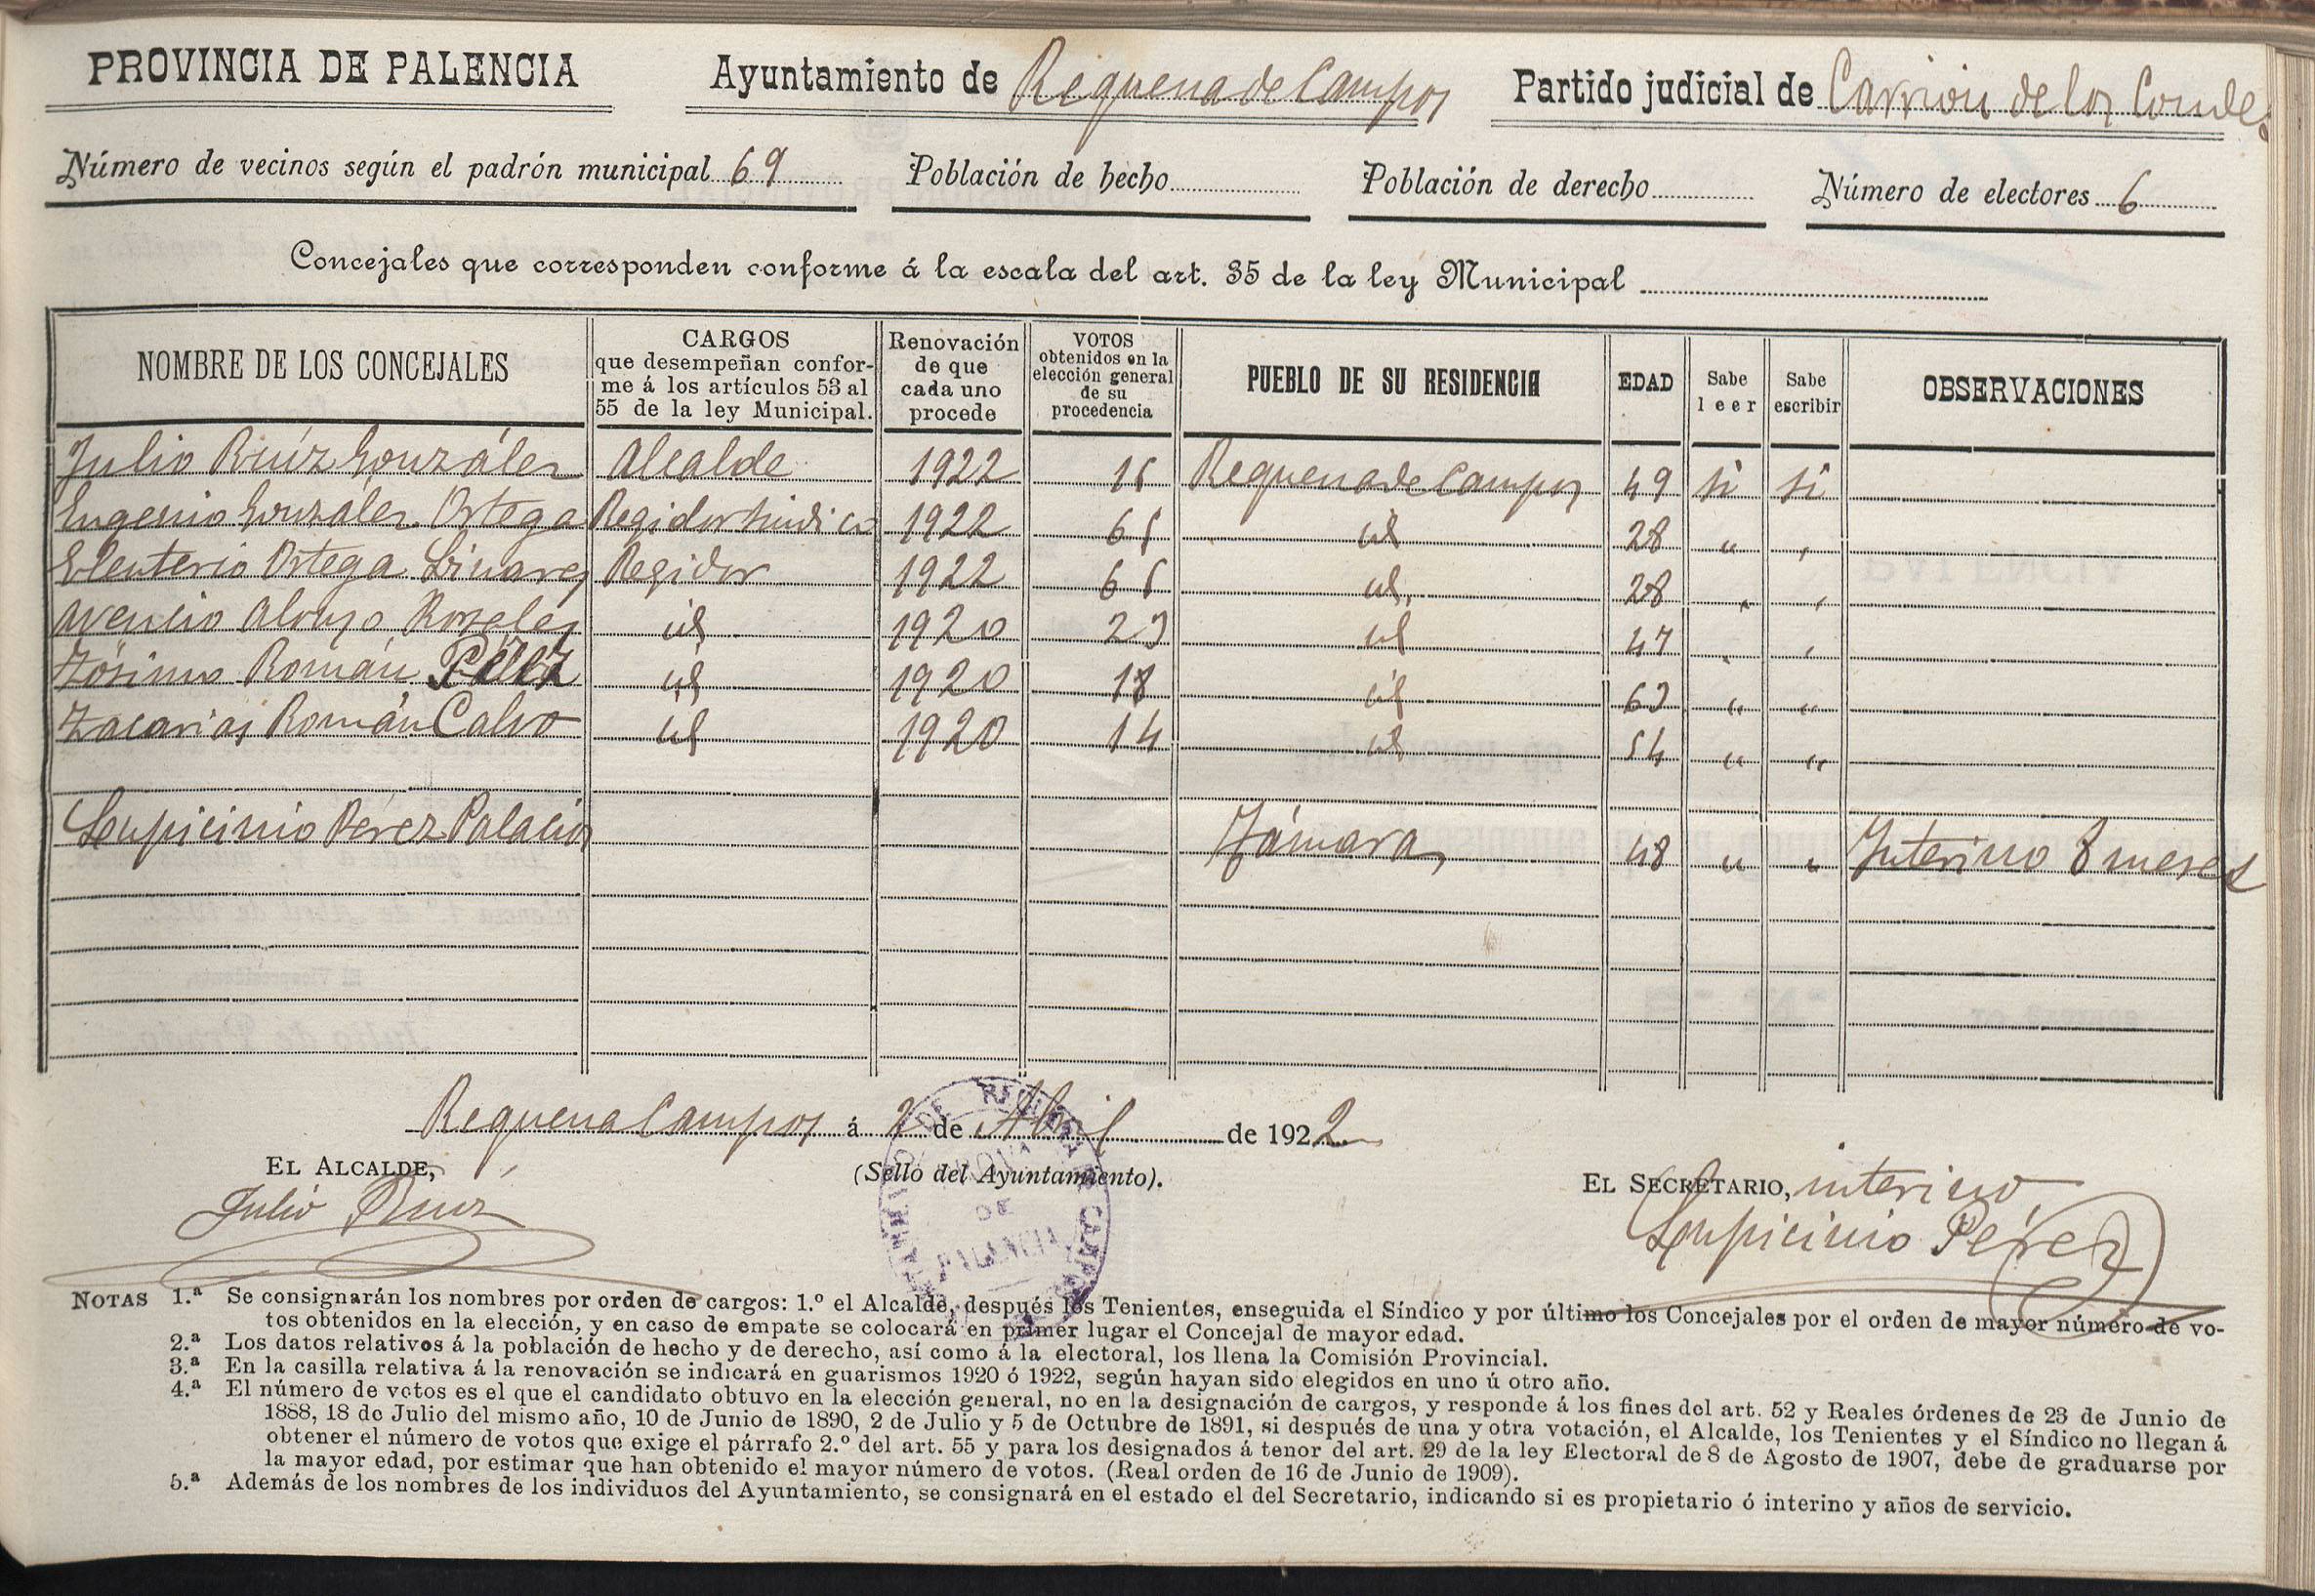 PROVINCIA DE PALENCIA Ayuntamiento de Requena de Campos Partido judicial de Carrion de los Condes
Número de vecinos según el padrón municipal 69 Población de hecho Población de derecho Número de electores 6
Concejales que corresponden conforme á la escala del art. 35 de la ley Municipal
NOMBRE DE LOS CONCEJALES CARGOS que desempeñan conforme á los artículos 53 al 55 de la ley Municipal. Renovación de que cada uno procede VOTOS obtenidos en la elección general de su procedencia PUEBLO DE SU RESIDENCIA EDAD Sabe leer Sabe escribir OBSERVACIONES
Julio Ruíz González Alcalde 1922 Requena de Campos 49 si si
Eugenio González Ortega Regidor Sindico 1922 65 id 28 " "
Eleuterio Ortega Linares Regidor 1922 65 id. 28 " "
Alonso id 1920 23 id 47 " "
Zósimo Román Pérez id 1920 18 id 63 " "
Zacarias Román Calvo id 1920 14 id 54 " "
Lupicinio Pérez Palacios Támara 48 " " Interino 8 meses
Requena Campos á 2 de Abril de 1922
EL ALCALDE, (Sello del Ayuntamiento). EL SECRETARIO, interino
Julio Ruiz Lupicinio Pérez
DE PALENCIA
NOTAS 1.ª Se consignarán los nombres por orden de cargos: 1.º el Alcalde, después los Tenientes, enseguida el Síndico y por último los Concejales por el orden de mayor número de vo-
tos obtenidos en la elección, y en caso de empate se colocará en primer lugar el Concejal de mayor edad.
2.ª Los datos relativos á la población de hecho y de derecho, así como á la electoral, los llena la Comisión Provincial.
3.ª En la casilla relativa á la renovación se indicará en guarismos 1920 ó 1922, según hayan sido elegidos en uno ú otro año.
4.ª El número de votos es el que el candidato obtuvo en la elección general, no en la designación de cargos, y responde á los fines del art. 52 y Reales órdenes de 23 de Junio de
1888, 18 de Julio del mismo año, 10 de Junio de 1890, 2 de Julio y 5 de Octubre de 1891, si después de una y otra votación, el Alcalde, los Tenientes y el Síndico no llegan á
obtener el número de votos que exige el párrafo 2.º del art. 55 y para los designados á tenor del art. 29 de la ley Electoral de 8 de Agosto de 1907, debe de graduarse por
la mayor edad, por estimar que han obtenido el mayor número de votos. (Real orden de 16 de Junio de 1909).
5.ª Además de los nombres de los individuos del Ayuntamiento, se consignará en el estado el del Secretario, indicando si es propietario ó interino y años de servicio.